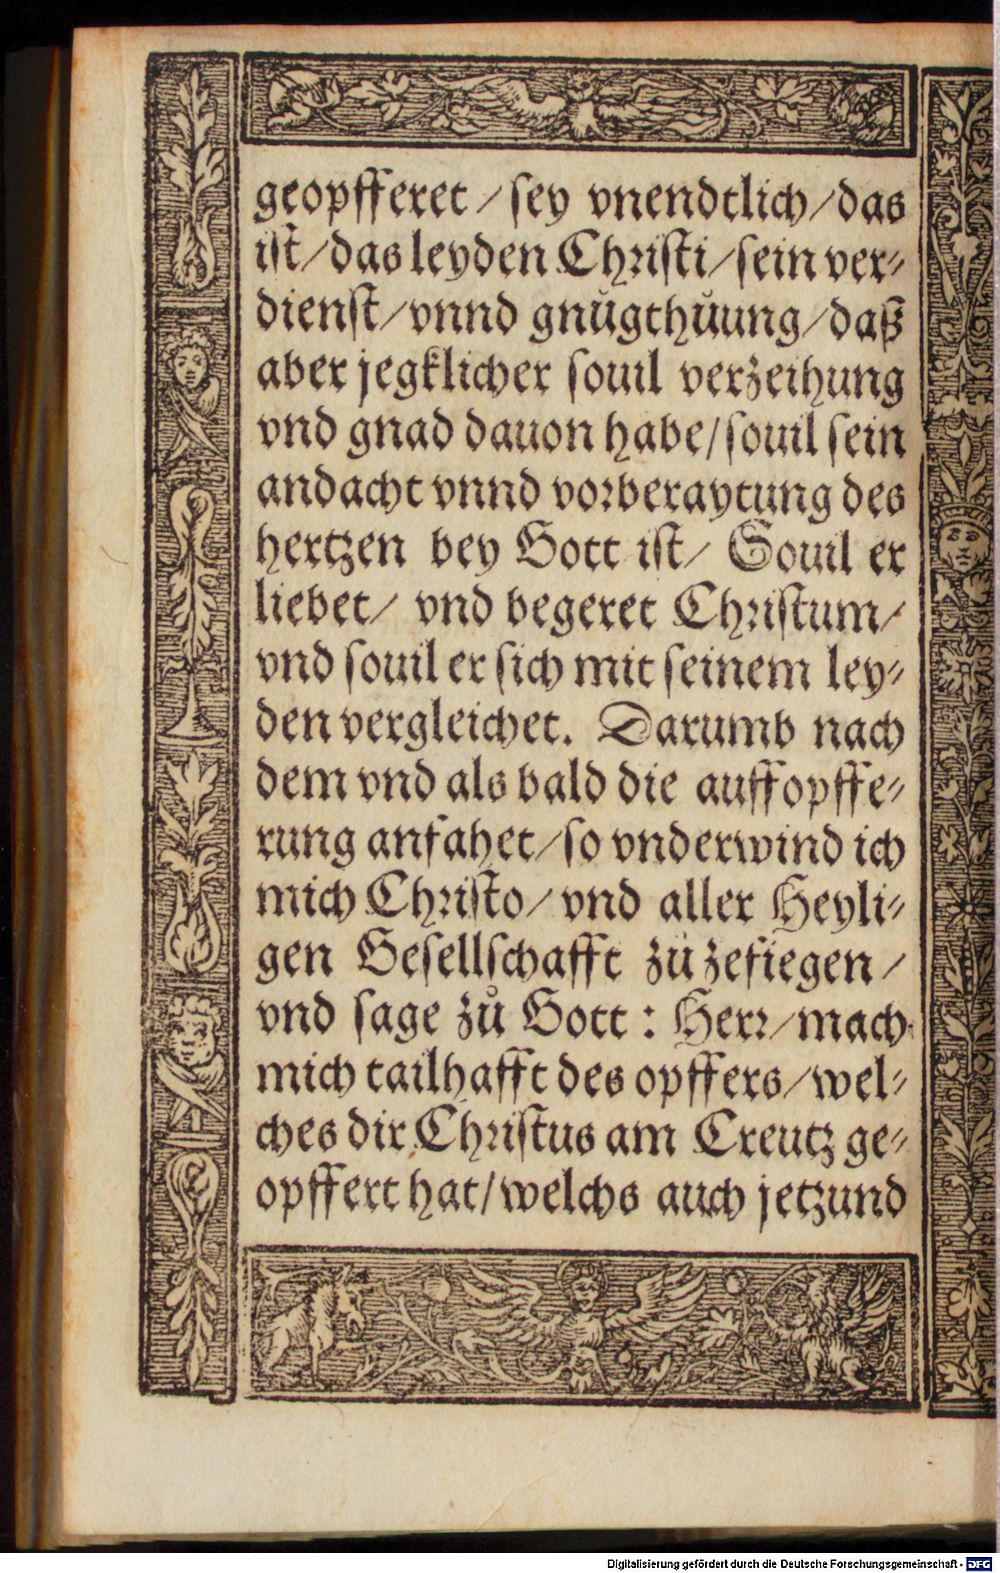 geopfferet / sey vnendtlich / das
ist / das leyden Christi / sein ver⸗
dienst / vnnd gnůgthůung / daß
aber jegklicher souil verzeihung
vnd gnad dauon habe / souil sein
andacht vnnd vorberaytung des
hertzen bey Gott ist / Souil er
liebet / vnd begeret Christum /
vnd souil er sich mit seinem ley⸗
den vergleichet. Darumb nach
dem vnd als bald die auffopffe⸗
rung anfahet / so vnderwind ich
mich Christo / vnd aller Heyli⸗
gen Gesellschafft zů zefiegen /
vnd sage zů Gott : Herr / mach
mich tailhafft des opffers / wel⸗
ches dir Christus am Creutz ge⸗
opffert hat / welchs auch jetzund
Digitalisierung gefördert durch die Deutsche Forschungsgemeinschaft - DFG